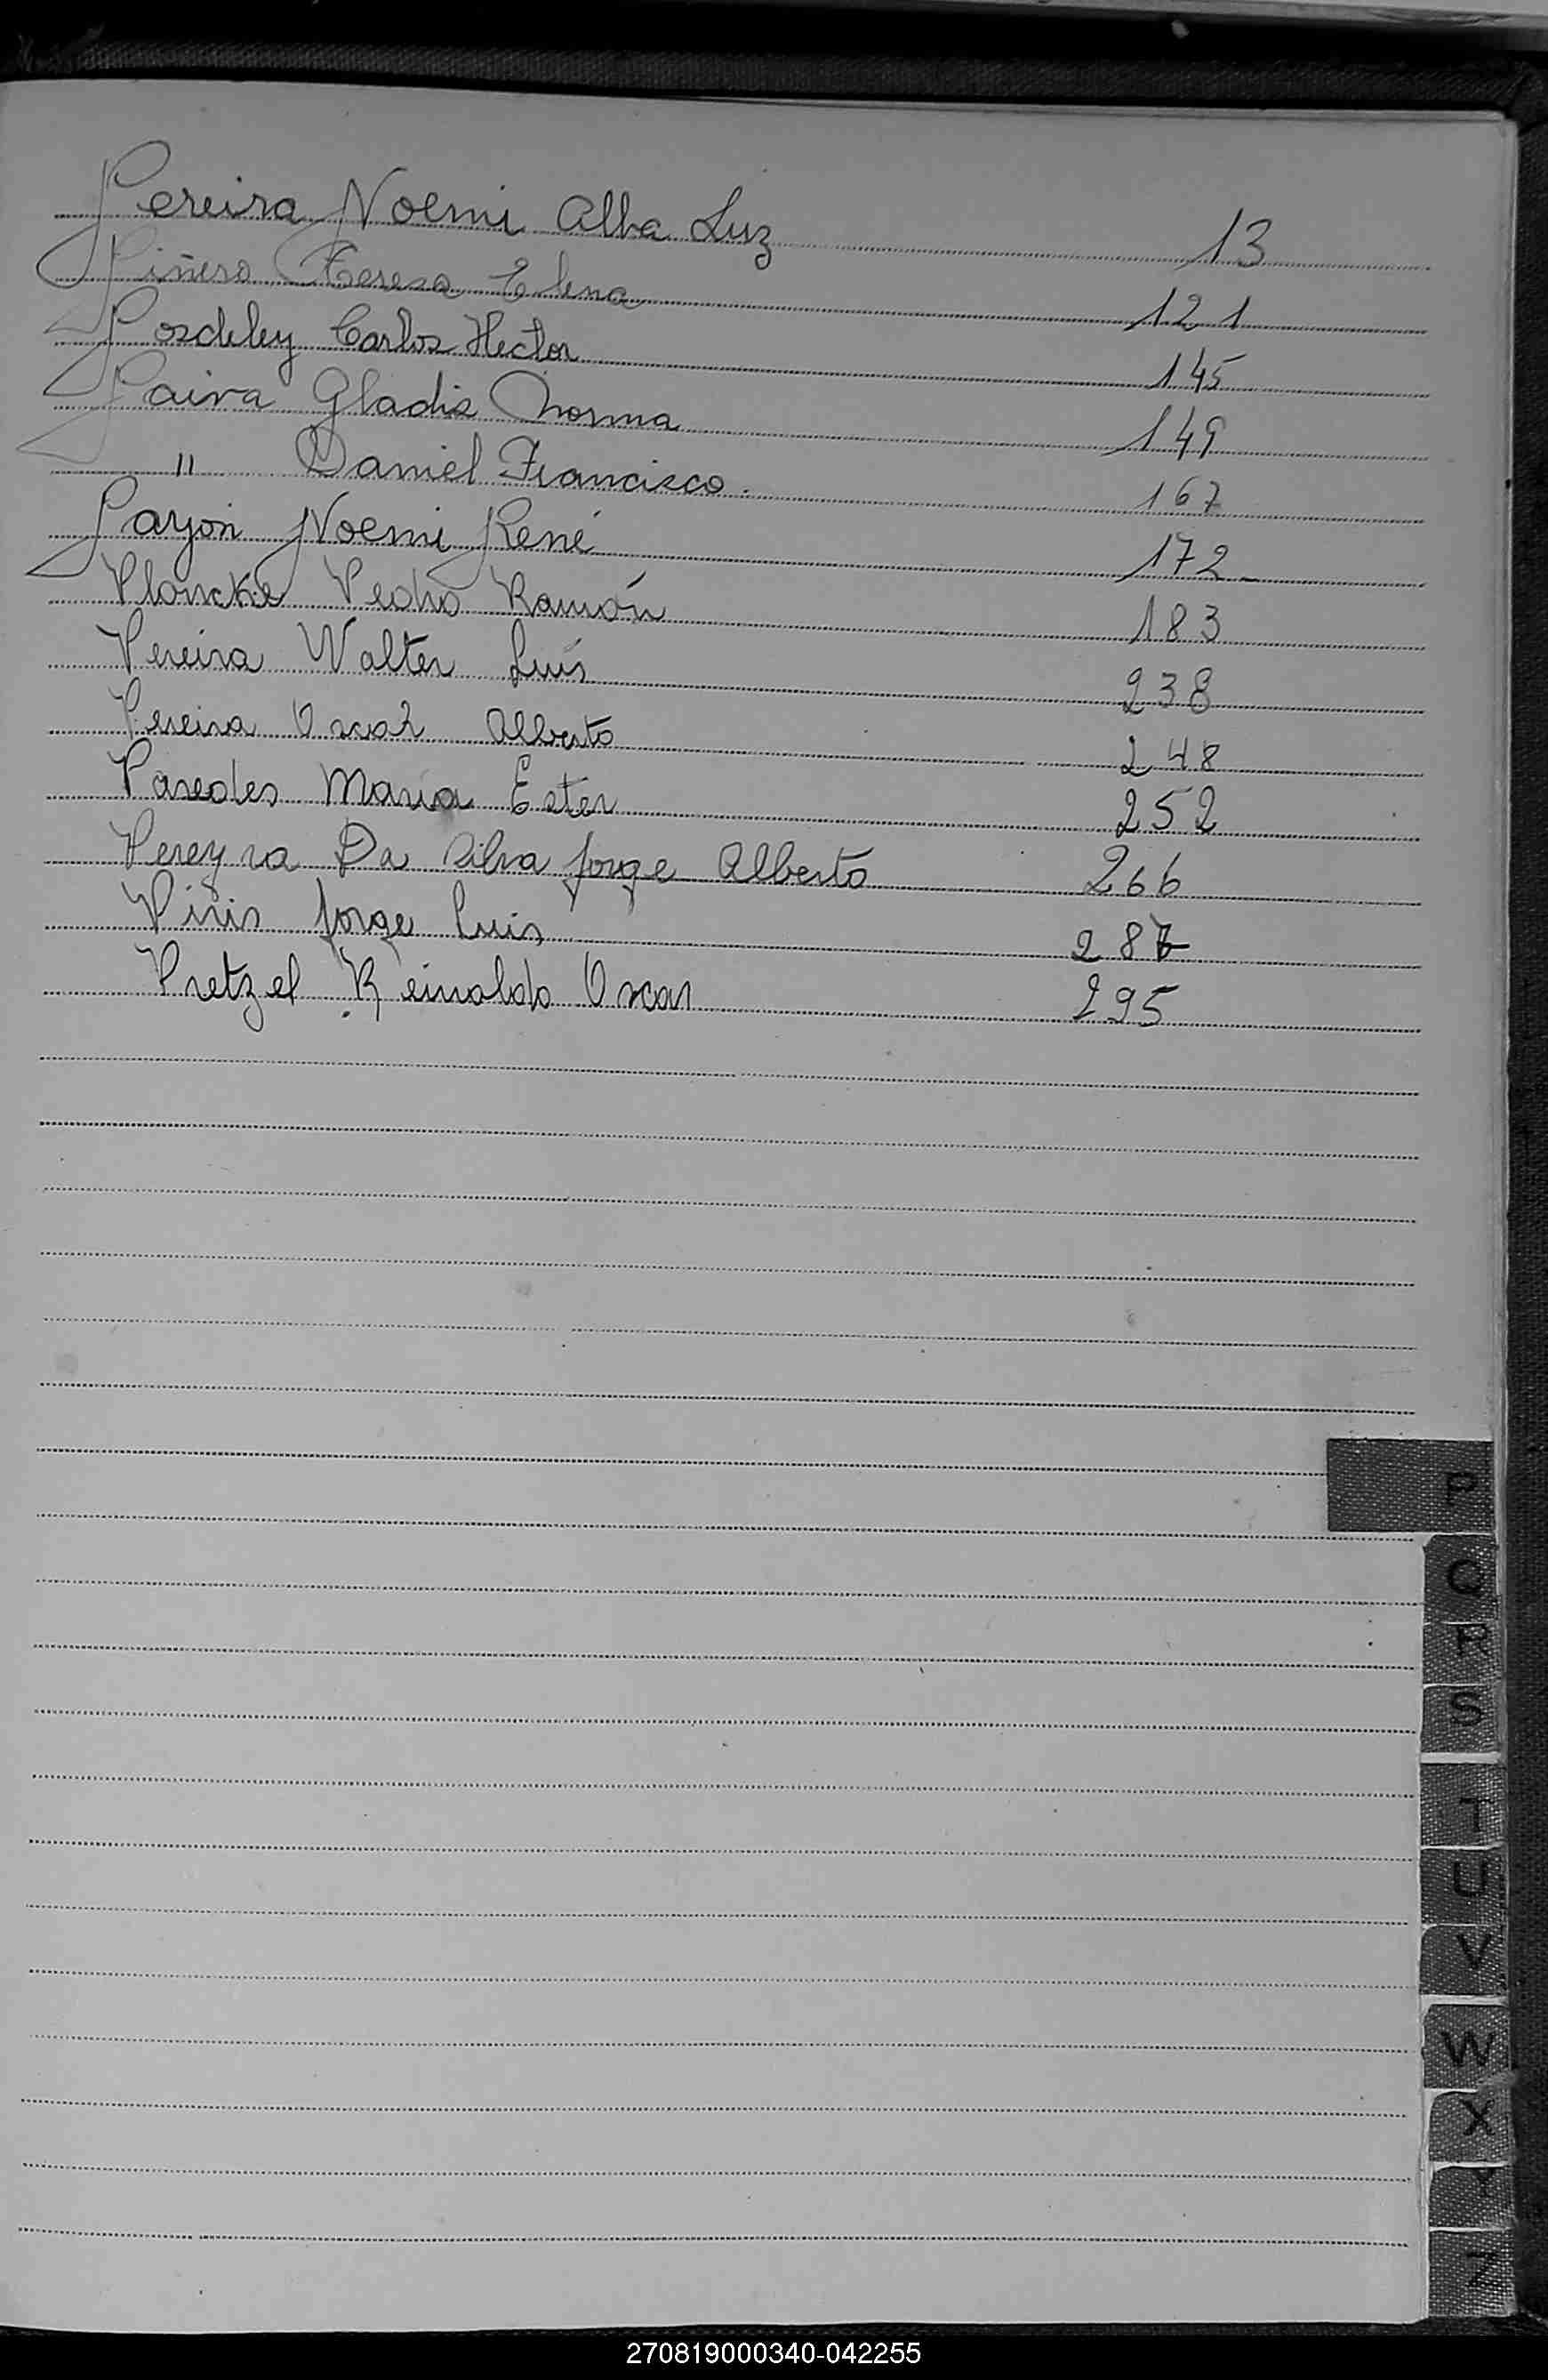 Pereira Noemi Alba Luz 13
Piñero Teresa Elena 121
Poschley Carlos Hector 145
Paiva Gladis Norma 149
" Daniel Francisco. 167
Payón Noemi René 172
Ploncke Pedro Ramón 183
Pereira Walter Luis 238
Pereira Oscar Alberto 248
Paredes Maria Ester 252
Pereyra Da Silva Jorge Alberto 266
Piris Jorge Luis 287
Pretzel Reinaldo Oscar 295
P
Q
R
S
T
U
V
W
X
Y
Z
270819000340-042255